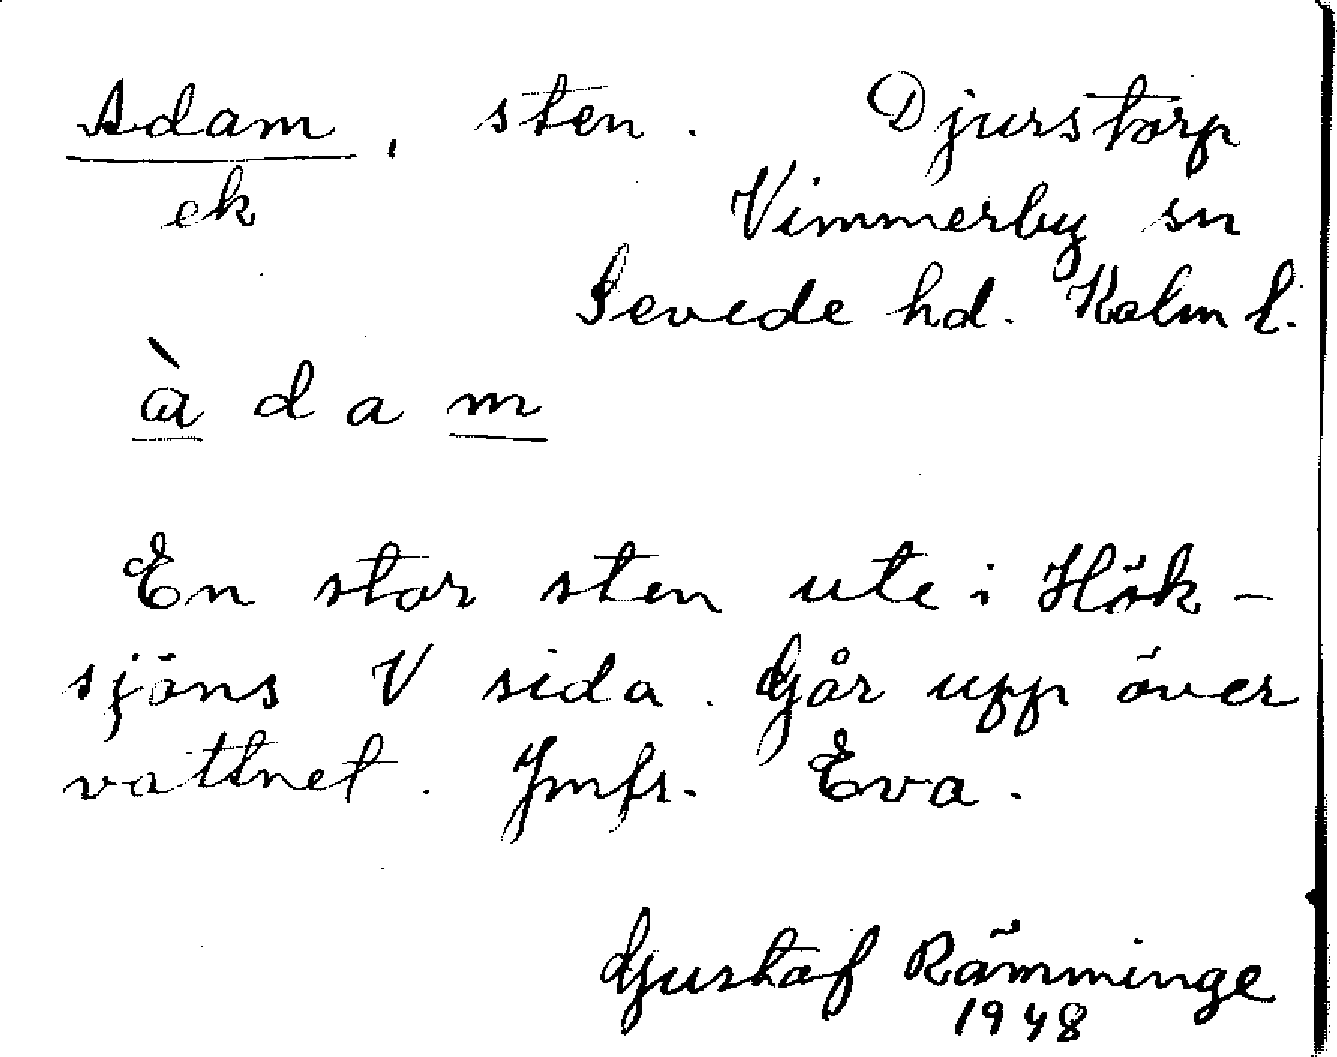 Adam, sten. Djurstorp
ek Vimmerby sn
Sevede hd. Kalm l.
àdam
En stor sten ute i Hök-
sjöns V sida. Går upp över
vattnet. Jmfr. Eva.
Gustaf Rämminge
1948